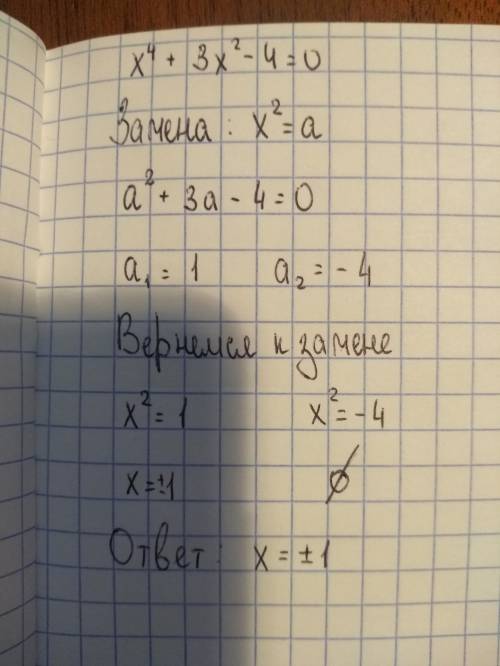 x⁴ + 3x² - 4 = 0
Замена: x² = a
a² + 3a - 4 = 0
a₁ = 1 a₂ = - 4
Вернемся к замене
x² = 1 x² = -4
x = ±1 ∅
Ответ: x = ± 1